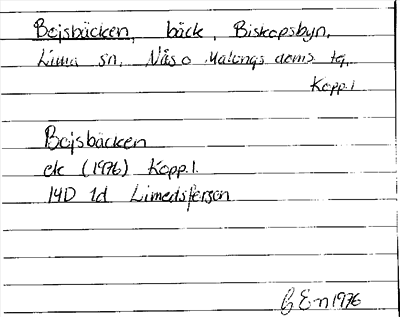 Bojsbäcken, bäck, Biskopsbyn,
Lima sn, Nås o Malungs doms tg,
Kopp. l
Bojsbäcken
ek (1976) Kopp. l.
14D 1d Limedsforsen
G En 1976